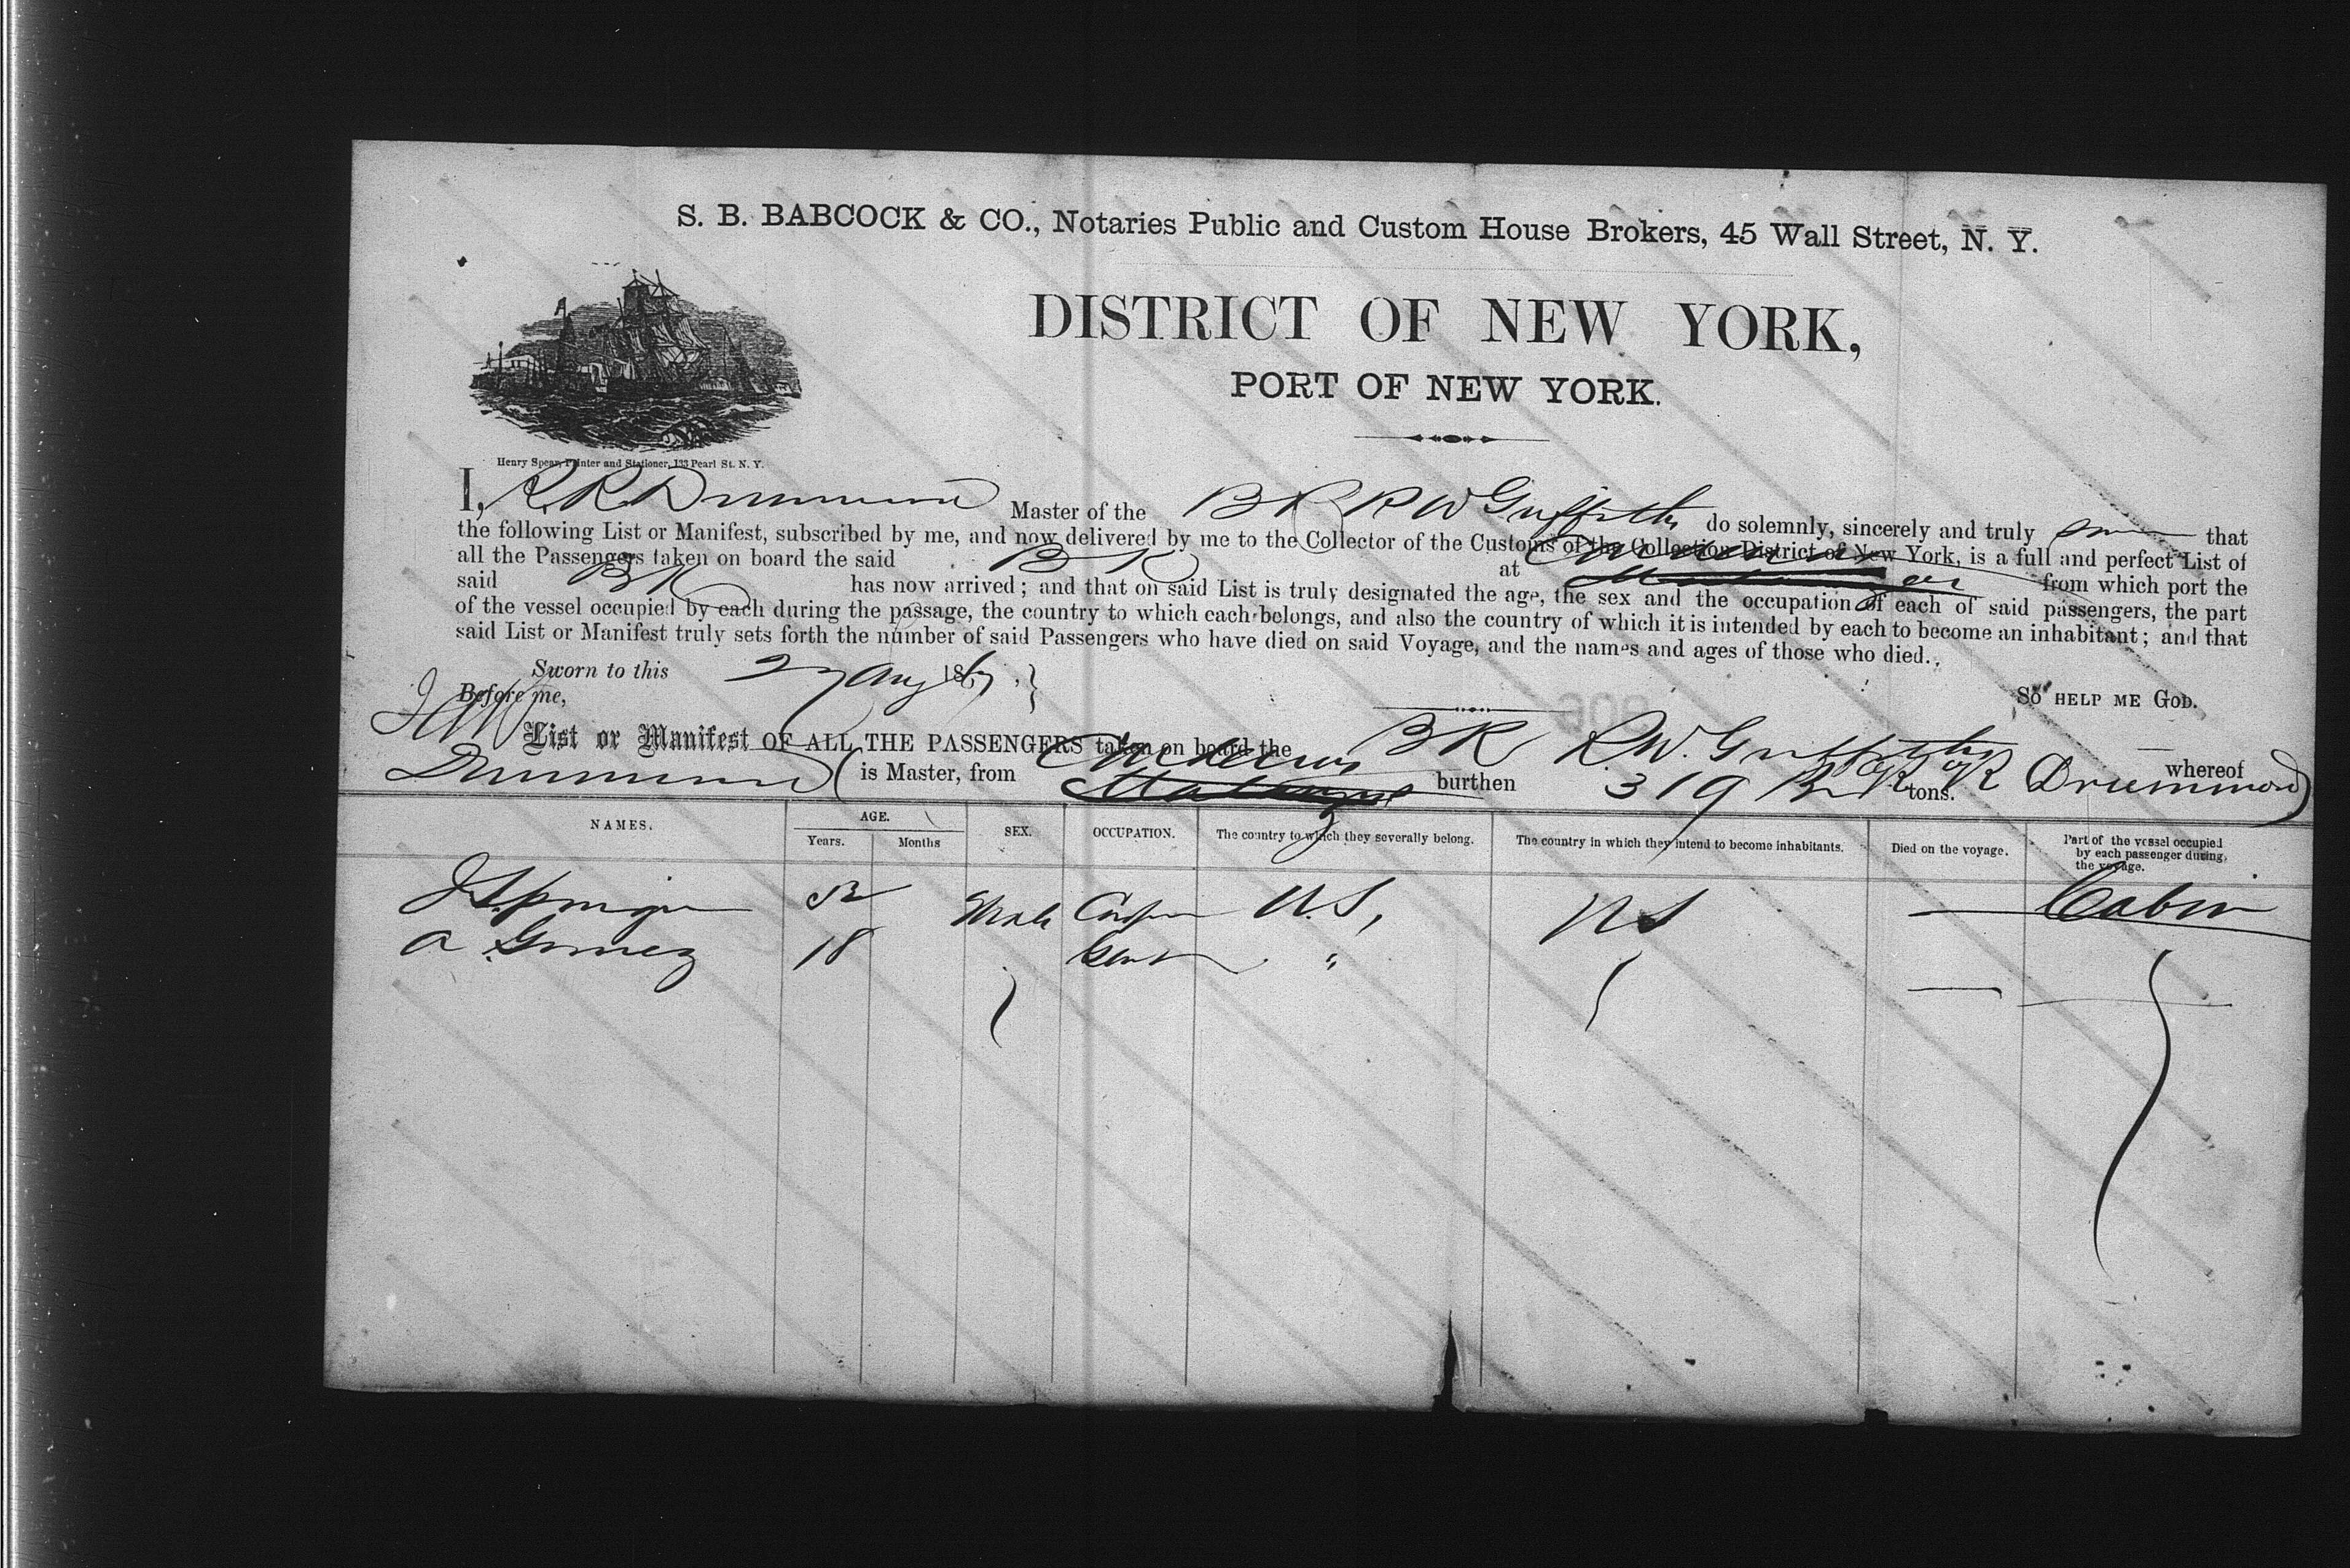 S. B. BABCOCK & CO., Notaries Public and Custom House Brokers, 45 Wall Street, N. Y.
DISTRICT OF NEW YORK,
PORT OF NEW YORK.
Henry Spear, Printer and Stationer, 133 Pearl St. N. Y.
I, R R Drummond Master of the BK R W Griffiths do solemnly, sincerely and truly that
the following List or Manifest, subscribed by me, and now delivered by me to the Collector of the Customs of the Collection District of New York, is a full and perfect List of
all the Passengers taken on board the said BK at from which port the
said BK has now arrived; and that on said List is truly designated the age, the sex and the occupation of each of said passengers, the part
of the vessel occupied by each during the passage, the country to which each belongs, and also the country of which it is intended by each to become an inhabitant; and that
said List or Manifest truly sets forth the number of said Passengers who have died on said Voyage, and the names and ages of those who died.
Sworn to this 27 Aug 1867
Before me,
SO HELP ME GOD.
List or Manifest OF ALL THE PASSENGERS taken on board the BK R W. Griffiths whereof
Drummond is Master, from burthen 319 tons. R R Drummond
NAMES. AGE. SEX. OCCUPATION. The country to which they severally belong. The country in which they intend to become inhabitants. Died on the voyage. Part of the vessel occupied by each passenger during, the voyage.
Years. Months
52 Male U.S, US — Cabin
A. Gomez 18 "